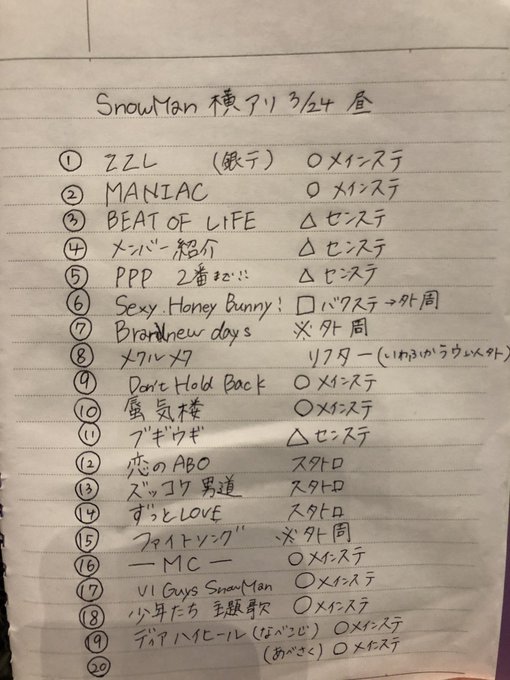 SnowMan 横アリ 3/24 昼
① ZZL (銀テ) ○メインステ
② MANIAC ○メインステ
③ BEAT OF LIFE △センステ
④ メンバー紹介 △センステ
⑤ PPP 2番まで!! △センステ
⑥ Sexy.Honey Bunny! □バクステ→外周
⑦ Brandnew days ※外周
⑧ メクルメク リフター(いわふかラウい外)
⑨ Don't Hold Back ○メインステ
⑩ 蜃気楼 ○メインステ
⑪ ブギウギ △センステ
⑫ 恋のABO スタトロ
⑬ ズッコケ男道 スタトロ
⑭ ずっとLOVE スタトロ
⑮ ファイトソング ※外周
⑯ ーMCー ○メインステ
⑰ VI Guys SnowMan ○メインステ
⑱ 少年たち 主題歌 ○メインステ
⑲ ディア ハイヒール(なべこじ) ○メインステ
⑳ (あべさく) ○メインステ